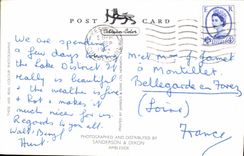 POST CARD
We are spending
a few days in
the Lake District. It
really is beautiful
& the weather is fine
& hot & makes it
much nice for us.
Regards to you all
Walt Beryl
Hunt
à Montillet
Bellegarde en Forez
(Loire)
France
PHOTOGRAPHED AND DISTRIBUTED BY
SANDERSON & DIXON
AMBLESIDE